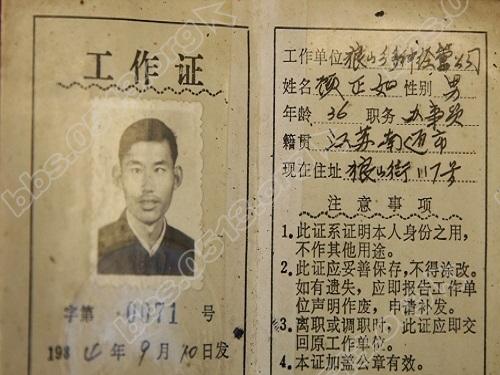 工作证
字第 0071 号
1984年9月10日发
工作单位 狼山乡多种经营公司
姓名 顾正如 性别 男
年龄 36 职务 办事员
籍贯 江苏南通市
现在住址 狼山街117号
注意事项
1.此证系证明本人身份之用,
不作其他用途。
2.此证应妥善保存,不得涂改。
如有遗失,应即报告工作单
位声明作废,申请补发。
3.离职或调职时,此证应即交
回原工作单位。
4.本证加盖公章有效。